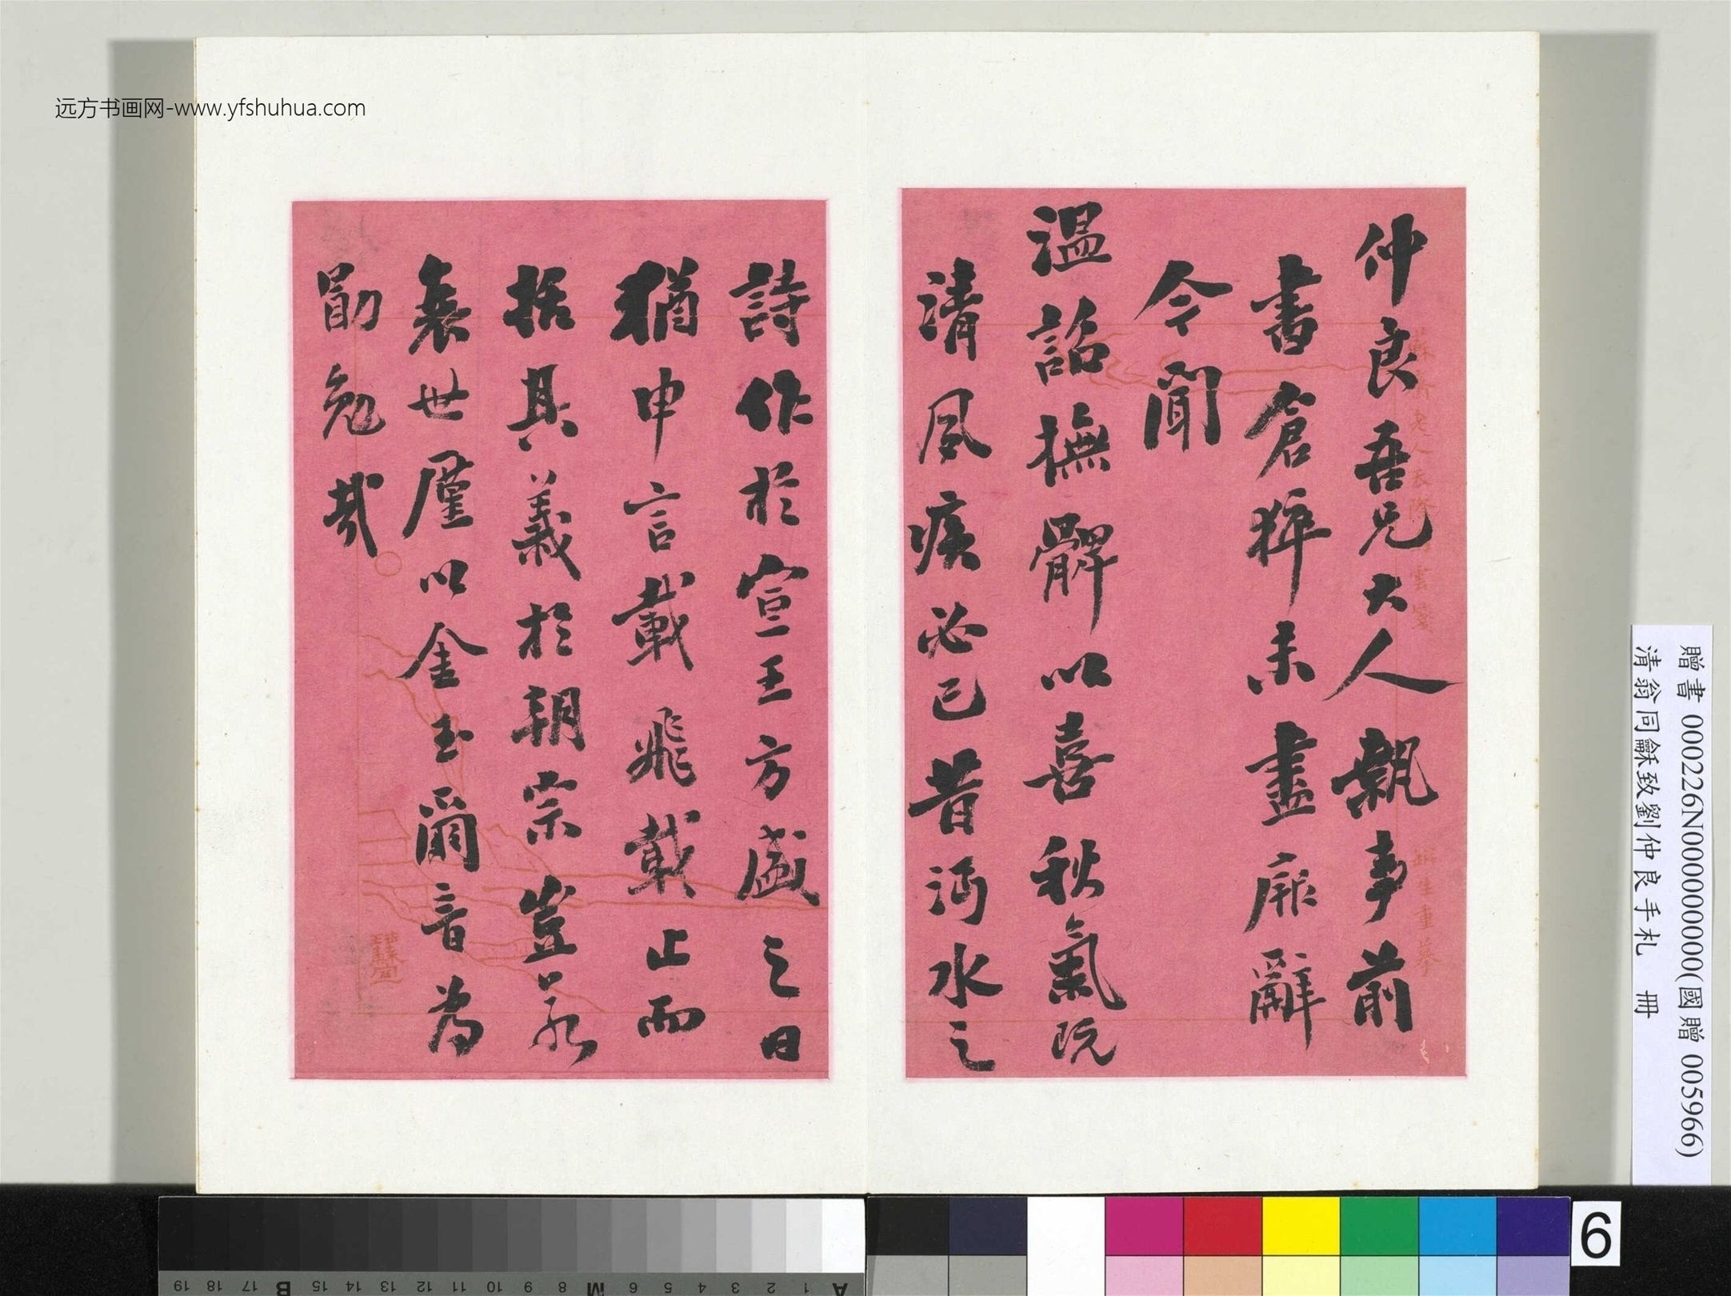 远方书画网-www.yfshuhua.com
仲良吾兄大人親事前
書倉猝未盡厥辭
令聞
溫詔撫髀以喜秋氣既
清風疾必已昔沔水之
詩作於宣王方盛之日
猶申言載飛載止而
括其義於朝宗豈若
衰世僅以金玉爾音為
勖勉哉
贈書 000226N000000000(國贈 005966)
清翁同龢致劉仲良手札 冊
6
A 1 2 3 4 5 6 M 8 9 10 11 12 13 14 15 B 17 18 19